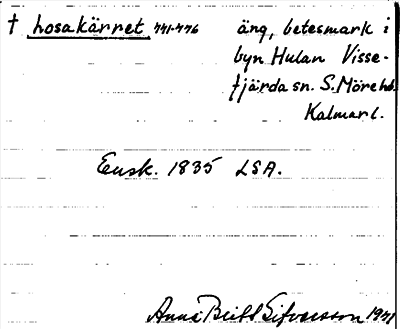 † hosakärret 441-446 äng, betesmark i
byn Hulan Visse-
fjärda sn. S. Möre hd.
Kalmar l.
Ensk. 1835 LSA.
Anna Britt Sifversson 1941